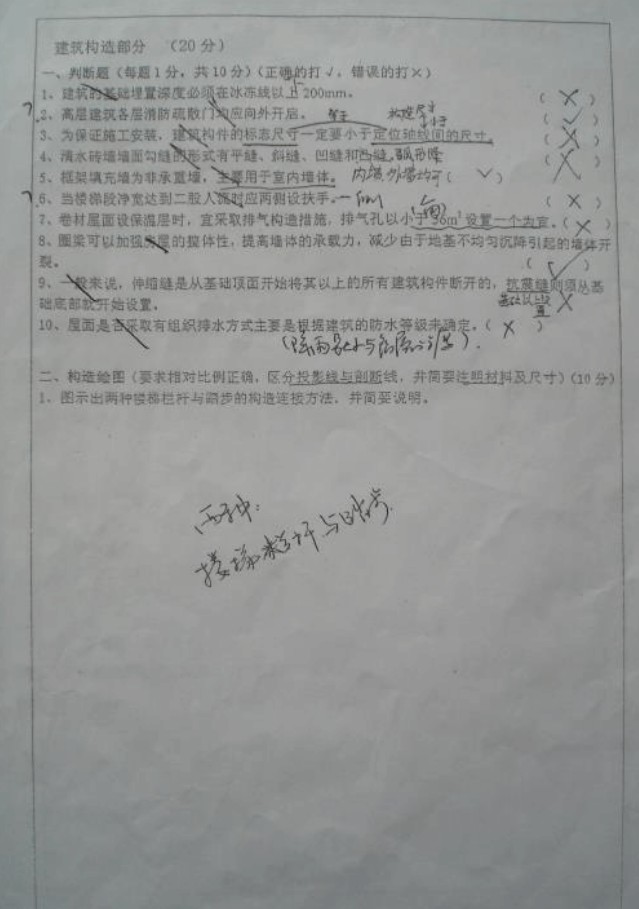 建筑构造部分 （20分）
一、判断题（每题1分，共10分）（正确的打√，错误的打×）
1、建筑的基础埋置深度必须在冰冻线以上200mm。 （ × ）
下
?
2、高层建筑各层消防疏散门均应向外开启。 （ ✓ ）
标志尺寸
3、为保证施工安装，建筑构件的标志尺寸一定要小于定位轴线间的尺寸。 （ × ）
4、清水砖墙墙面勾缝的形式有平缝、斜缝、凹缝和凸缝。弧形缝 （ × ）
5、框架填充墙为非承重墙，主要用于室内墙体。 内墙外墙均可（ ✓ ）
?
6、当楼梯段净宽达到二股人流时应两侧设扶手。一侧 （ × ）
7、卷材屋面设保温层时，宜采取排气构造措施，排气孔以小于36m²设置一个为宜。（ × ）
8、圈梁可以加强房屋的整体性，提高墙体的承载力，减少由于地基不均匀沉降引起的墙体开
裂。 （ ✓ ）
9、一般来说，伸缩缝是从基础顶面开始将其以上的所有建筑构件断开的，抗震缝则须从基
础底部就开始设置。 基础以上设置 ×
10、屋面是否采取有组织排水方式主要是根据建筑的防水等级来确定。（ × ）
二、构造绘图（要求相对比例正确，区分投影线与剖断线，并简要注明材料及尺寸）（10分）
1、图示出两种楼梯栏杆与踏步的构造连接方法，并简要说明。
两种：
楼梯栏杆与踏步